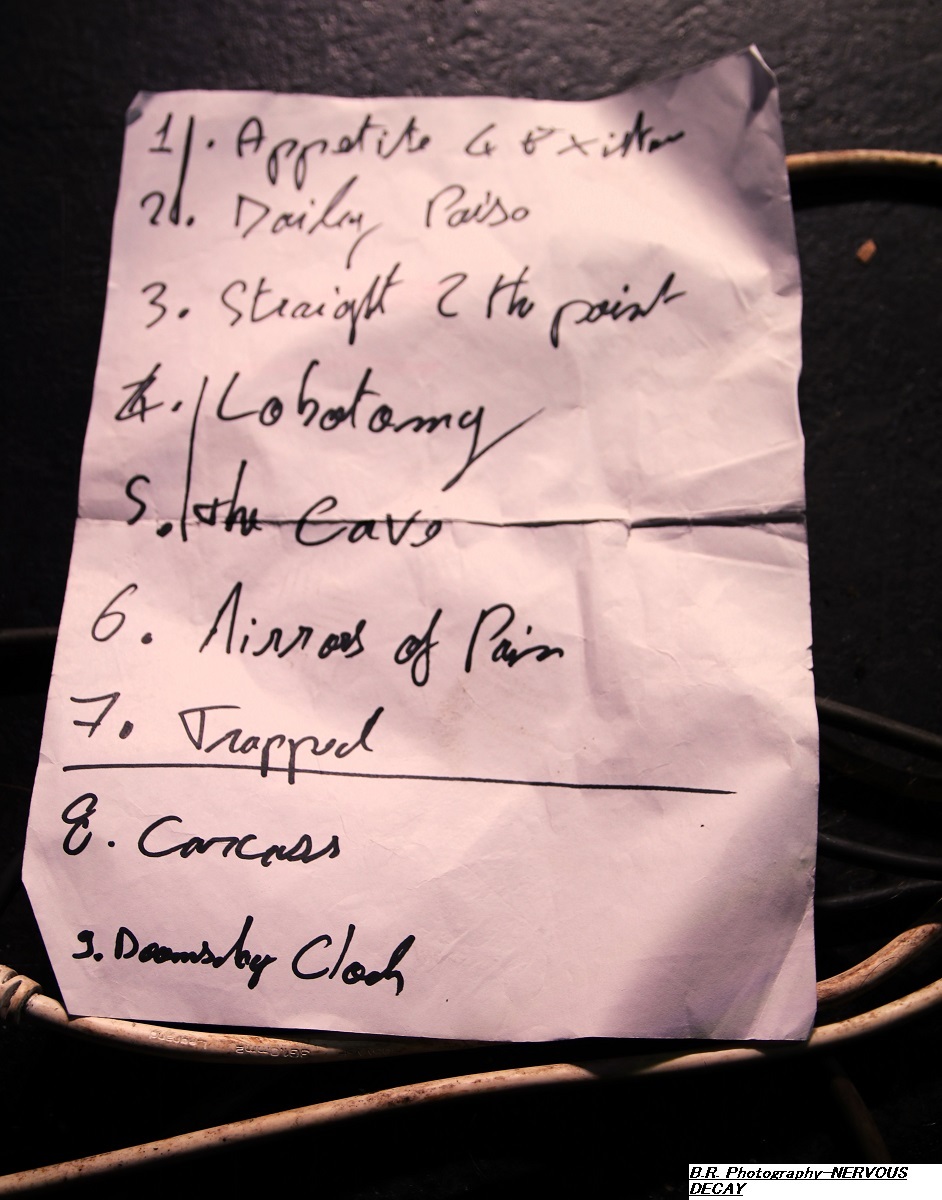 1. Appetite 4
2. Daily
3. Straight 2 the point
4. Lobotomy
5. The Cave
6. Mirrors of Pain
7. Trapped
8. Carcass
9. Doomsday Clock
B.R. Photography-NERVOUS
DECAY